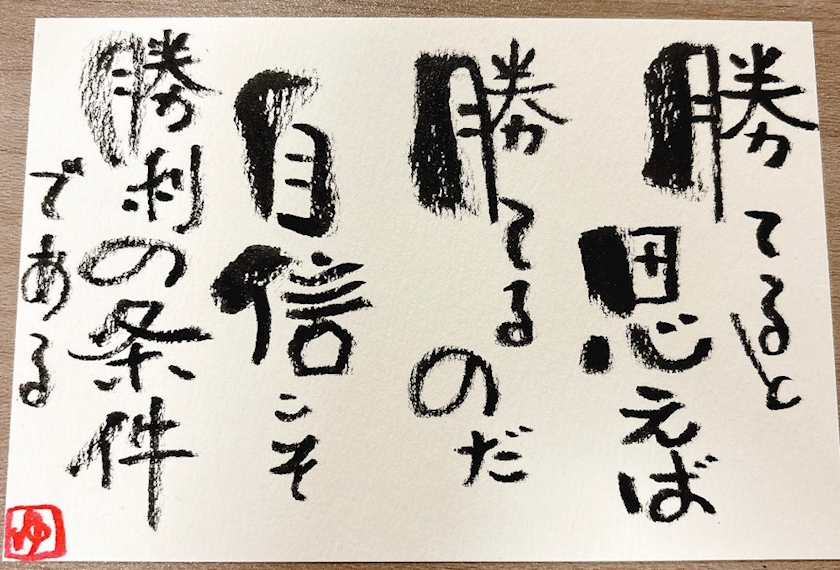 勝てると
思えば
勝てる
のだ
自信こそ
勝利の条件
である
ゆ